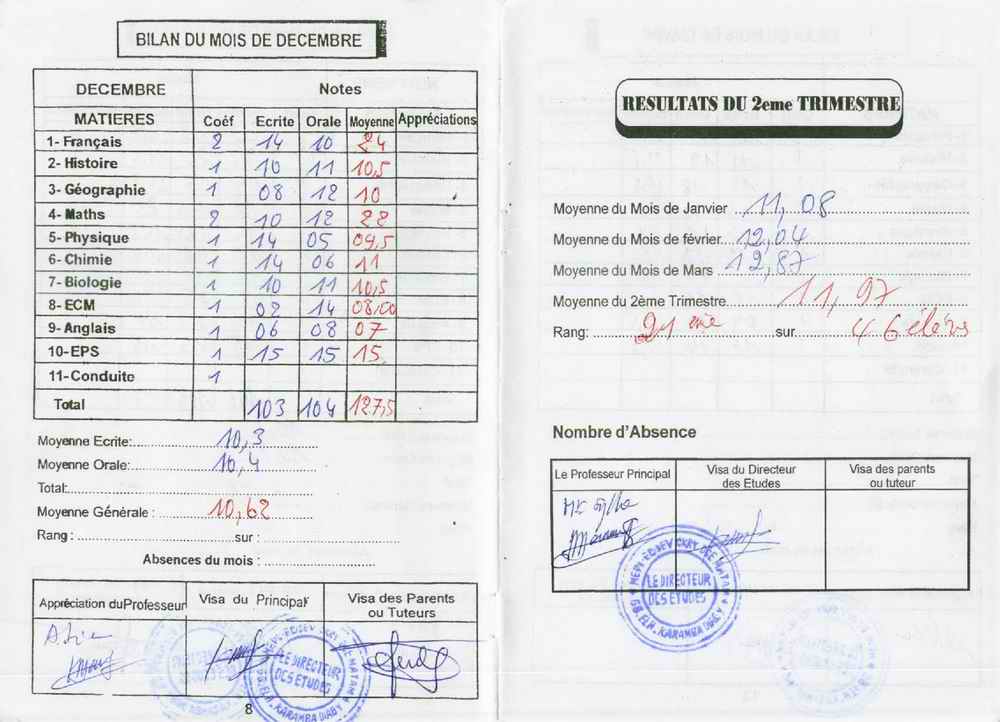 BILAN DU MOIS DE DECEMBRE
DECEMBRE Notes
MATIERES Coéf Ecrite Orale Moyenne Appréciations
1- Français 2 14 10 24
2- Histoire 1 10 11 10,5
3- Géographie 1 08 12 10
4- Maths 2 10 12 22
5- Physique 1 14 05 09,5
6- Chimie 1 14 06 11
7- Biologie 1 10 11 10,5
8- ECM 1 02 14 08,00
9- Anglais 1 06 08 07
10-EPS 1 15 15 15
11-Conduite 1
Total 103 104 127,5
Moyenne Ecrite: 10,3
Moyenne Orale: 10,4
Total:
Moyenne Générale : 10,62
Rang : sur :
Absences du mois :
Appréciation du Professeur Visa du Principal Visa des Parents ou Tuteurs
LE DIRECTEUR
DES ETUDES
8
RESULTATS DU 2eme TRIMESTRE
Moyenne du Mois de Janvier 11,08
Moyenne du Mois de février 12,04
Moyenne du Mois de Mars 12,87
Moyenne du 2ème Trimestre 11,97
Rang: 21 eme sur 46 élèves
Nombre d'Absence
Le Professeur Principal Visa du Directeur des Etudes Visa des parents ou tuteur
Mr Sylla
LE DIRECTEUR
DES ETUDES